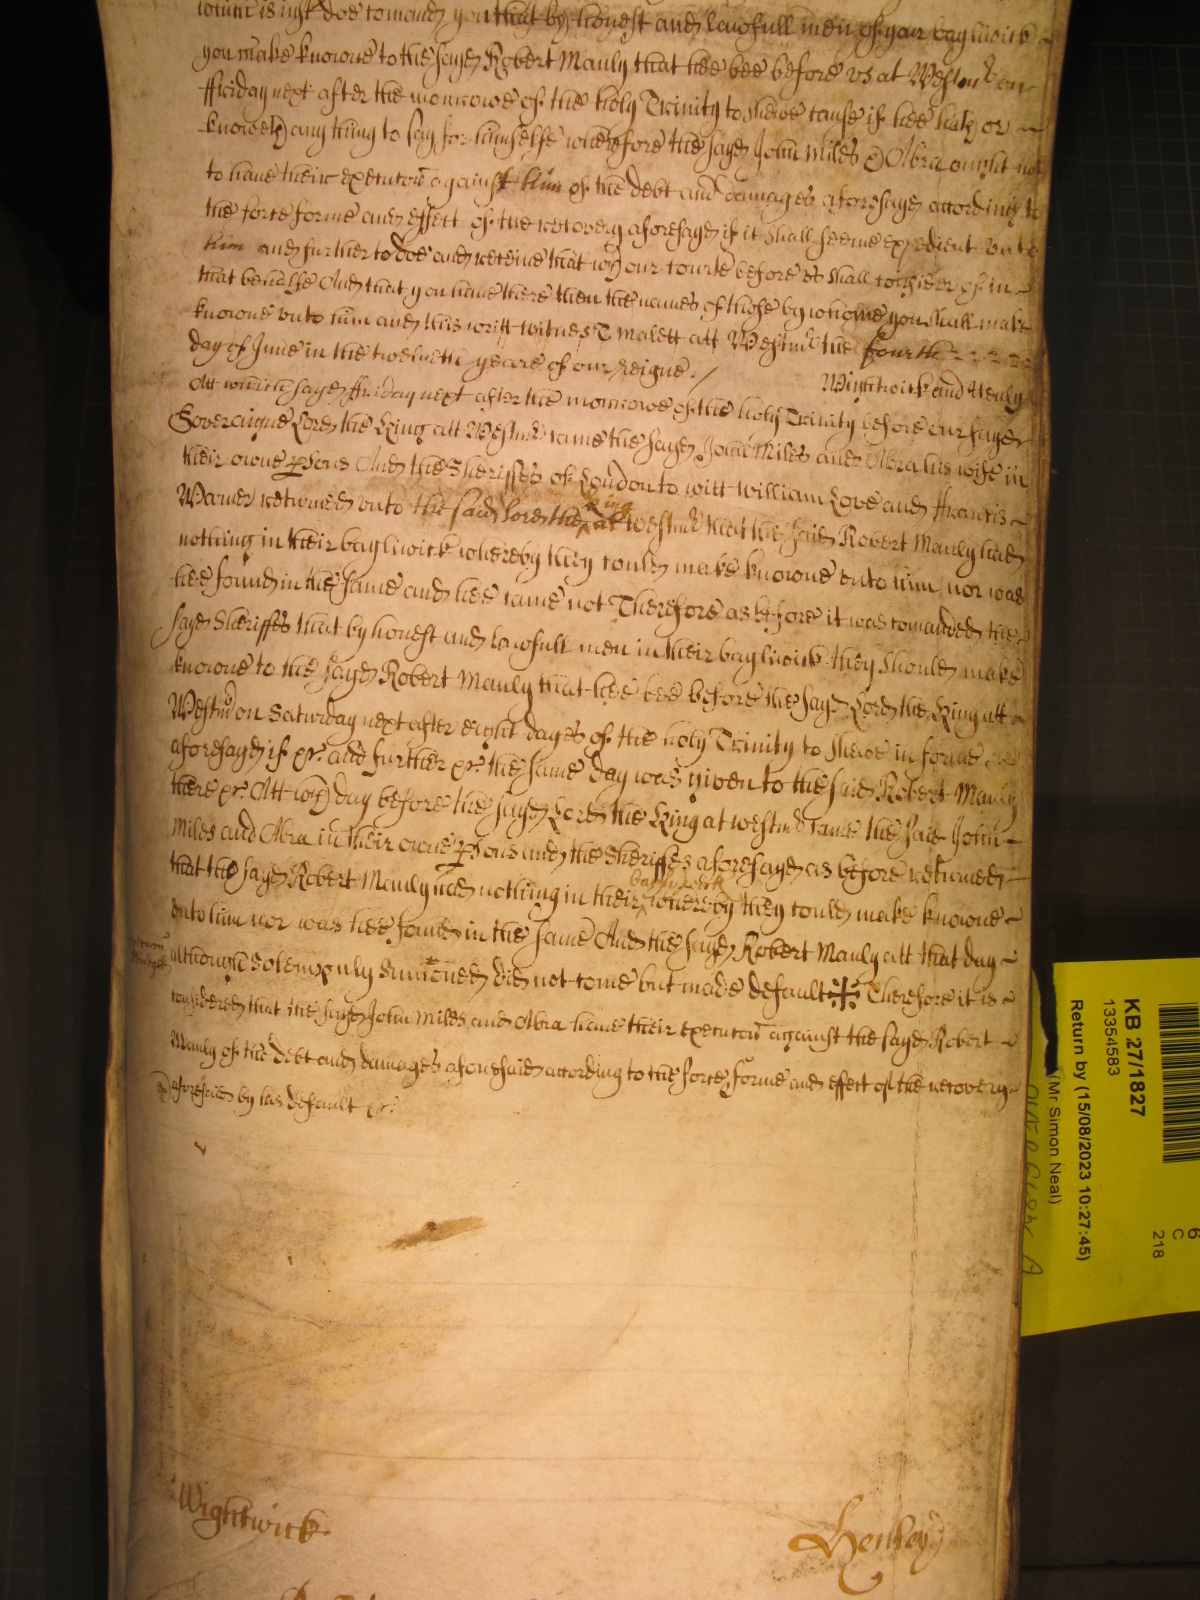 which is iust doe comand you that by honest and lawfull men of your bayliwick
you make knowne to the sayd Robert Manly that hee bee before vs at Westmr on
ffriday next after the morrowe of the holy Trinity to shewe cause if hee hath or
knoweth any thing to say for himselfe wherefore the sayd John Miles & Abra ought not
to haue their execucon against him of the debt and damages aforesayd according to
the force forme and effect of the recovery aforesayd if it shall seeme expedient vnto
him and further to doe and receiue that wch our Courte before vs shall consider of in
that behalfe And that you haue there then the names of those by whome you shall make
knowne vnto him and this writt witnes T Malett att Westmr the fourth
day of June in the twelueth yeare of our reigne./ Wightwick and Henly
Att which sayd ffriday next after the morrowe of the holy Trinity before our sayd
Soveraigne Lord the King att Westmr came the sayd John Miles and Abra his wife in
their owne psons And the Sheriffes of London to witt William Love and ffrancis
Warner returned vnto the said lord the king at Westmr that the said Robert Manly had
nothing in their bayliwick whereby they could make knowne vnto him nor was
hee found in the same and hee came not Therefore as before it was comanded the
sayd Sheriffes that by honest and lawfull men in their bayliwick they should make
knowne to the sayd Robert Manly that hee bee before the sayd Lord the King att
Westmr on Saturday next after eight dayes of the holy Trinity to shewe in forme
aforesayd if &c. and further &c. the same day was given to the said Robert Manly
there &c. Att wch day before the sayd Lord the King at westmr came the said John
Miles and Abra in their owne psons and the Sheriffes aforesayd as before returned
that the sayd Robert Manly had nothing in their bayliwick whereby they could make knowne
vnto him nor was hee found in the same And the sayd Robert Manly att that day
although solempnly sumoned did not come but made default Therefore it is
considered that the sayd John Miles and Abra haue their execucon against the sayd Robert
Manly of the debt and damages aforesaid according to the force forme and effect of the recovery
aforesaid by his default &c.
Wightwick
Henley
KB 27/1827
13354583
Return by (15/08/2023 10:27:45)
(Mr Simon Neal)
6
C
218